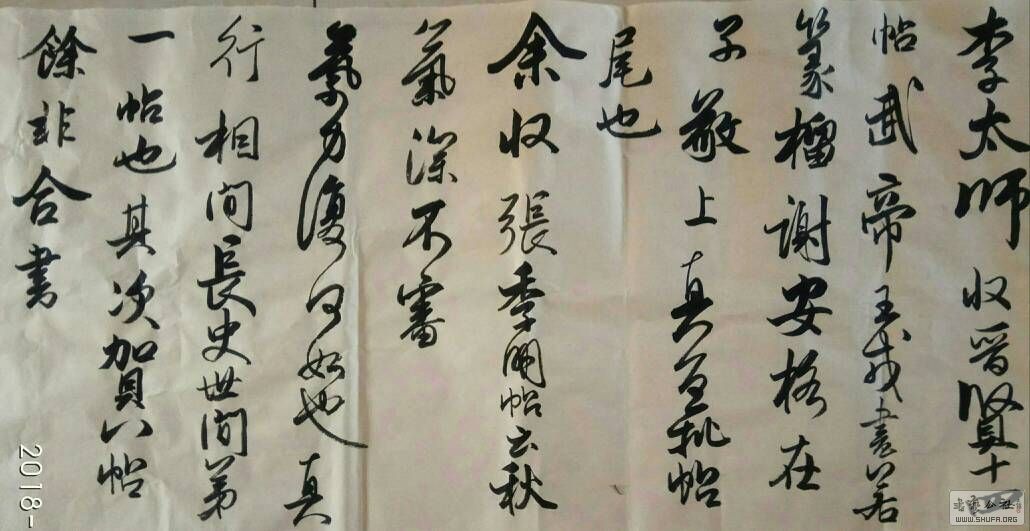 李太师收晋贤十四
帖武帝王戎书若
篆榴谢安格在
子敬上真宜批帖
尾也
余收張季明帖云秋
氣深不審
氣力復何如也真
行相间長史世间第
一帖也其次賀八帖
餘非合書
2018-
WWW.SHUFA.ORG